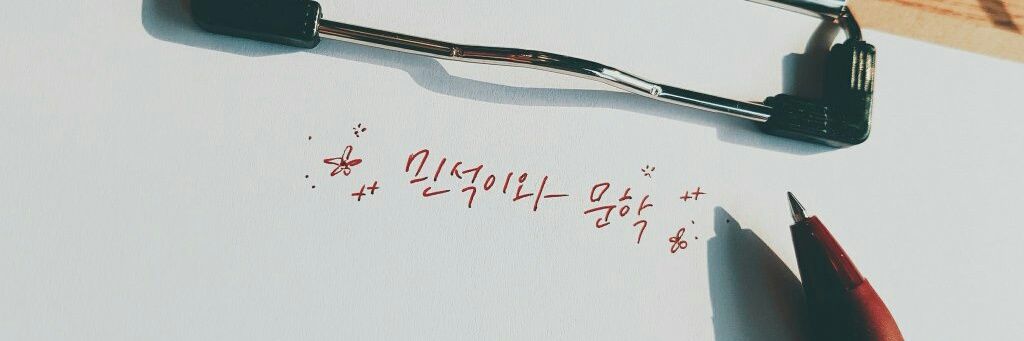 민석이와 문학